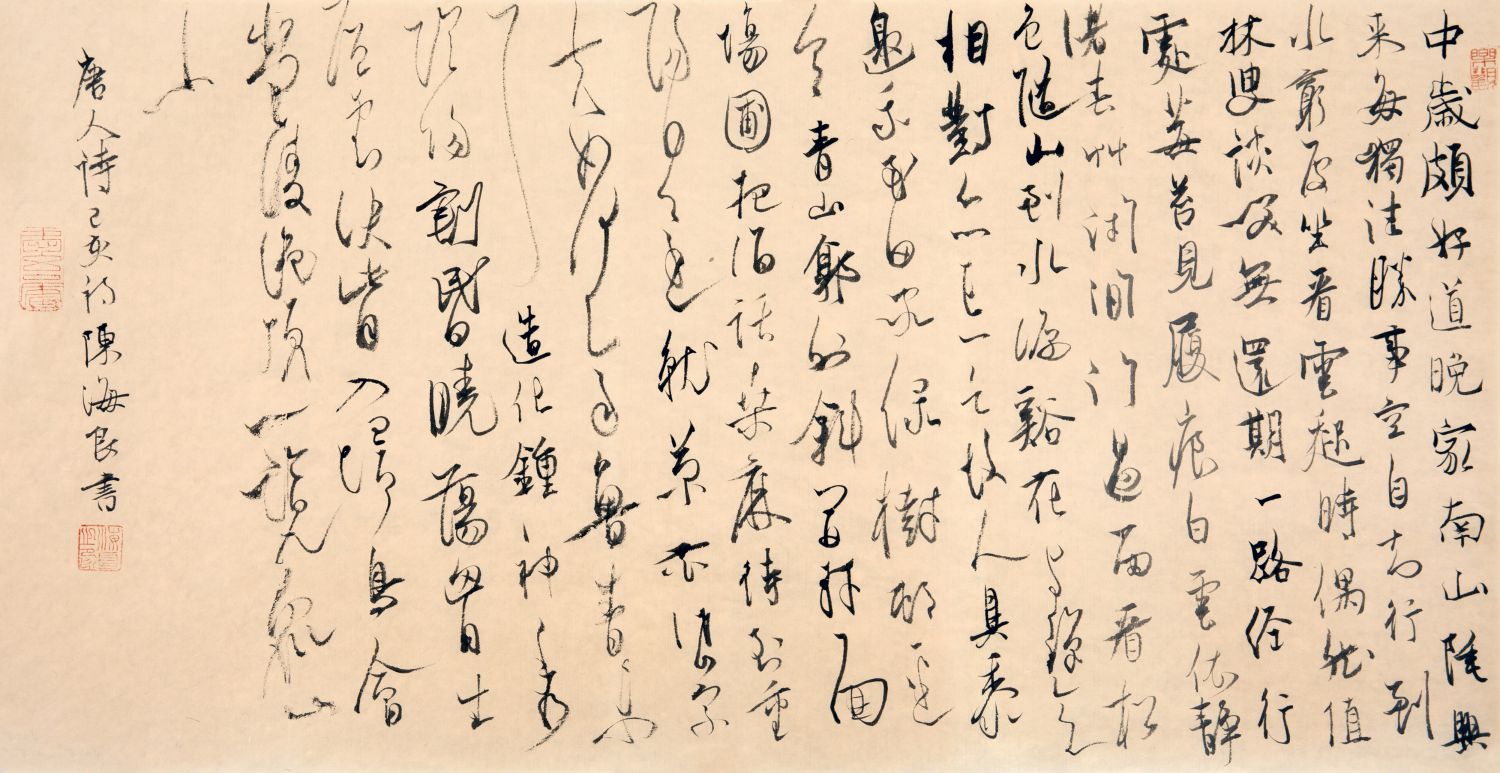 中歲頗好道晚家南山陲興
来每獨往勝事空自知行到
水窮處坐看雲起時偶然值
林叟談笑無還期一路經行
處莓苔見履痕白雲依靜
渚春艸閉閒門過雨看松
色隨山到水源谿花與禪意
相對亦忘言故人具黍
邀我至田家綠樹村邊
合青山郭外斜開軒面
場圃把酒話桑麻待到重
陽日還来就菊花岱宗
夫如何齊魯青未
了造化鍾神秀
陰陽割昏曉盪胸生
層雲決眥入歸鳥會
當凌絕頂一覽眾山
小
唐人詩己亥初陳海良書